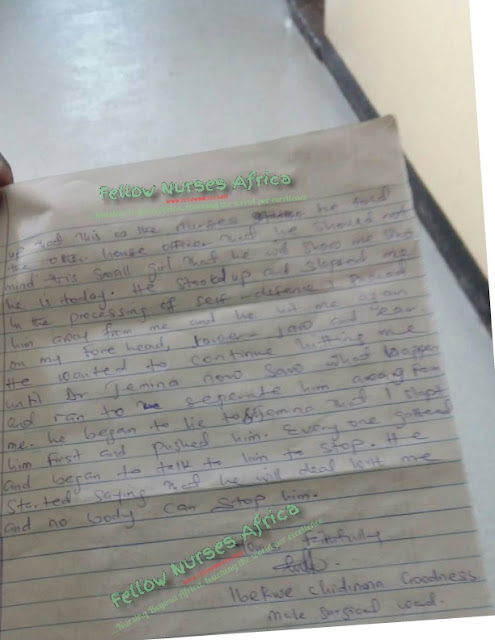 Fellow Nurses Africa
us that this is the nurses he told
the other house officer that he should not
mind this small girl that he will show me who
he is today. He stoodup and slapped me
In the processing of self-defense I pushed
him away from me and he hit me again
on my fore head, lower jaw and ear
He wanted to continue hitting me
until Dr Jemina now saw what happen
and ran to separate him away from
me. he began to lie to Jemina that I slapt
him first and pushed him. Every one gathered
and began to talk to him to stop. He
Started saying that he will deal with me
and no body can stop him.
Fellow Nurses Africa
Ibekwe Chidinma Goodness
Male surgical ward.